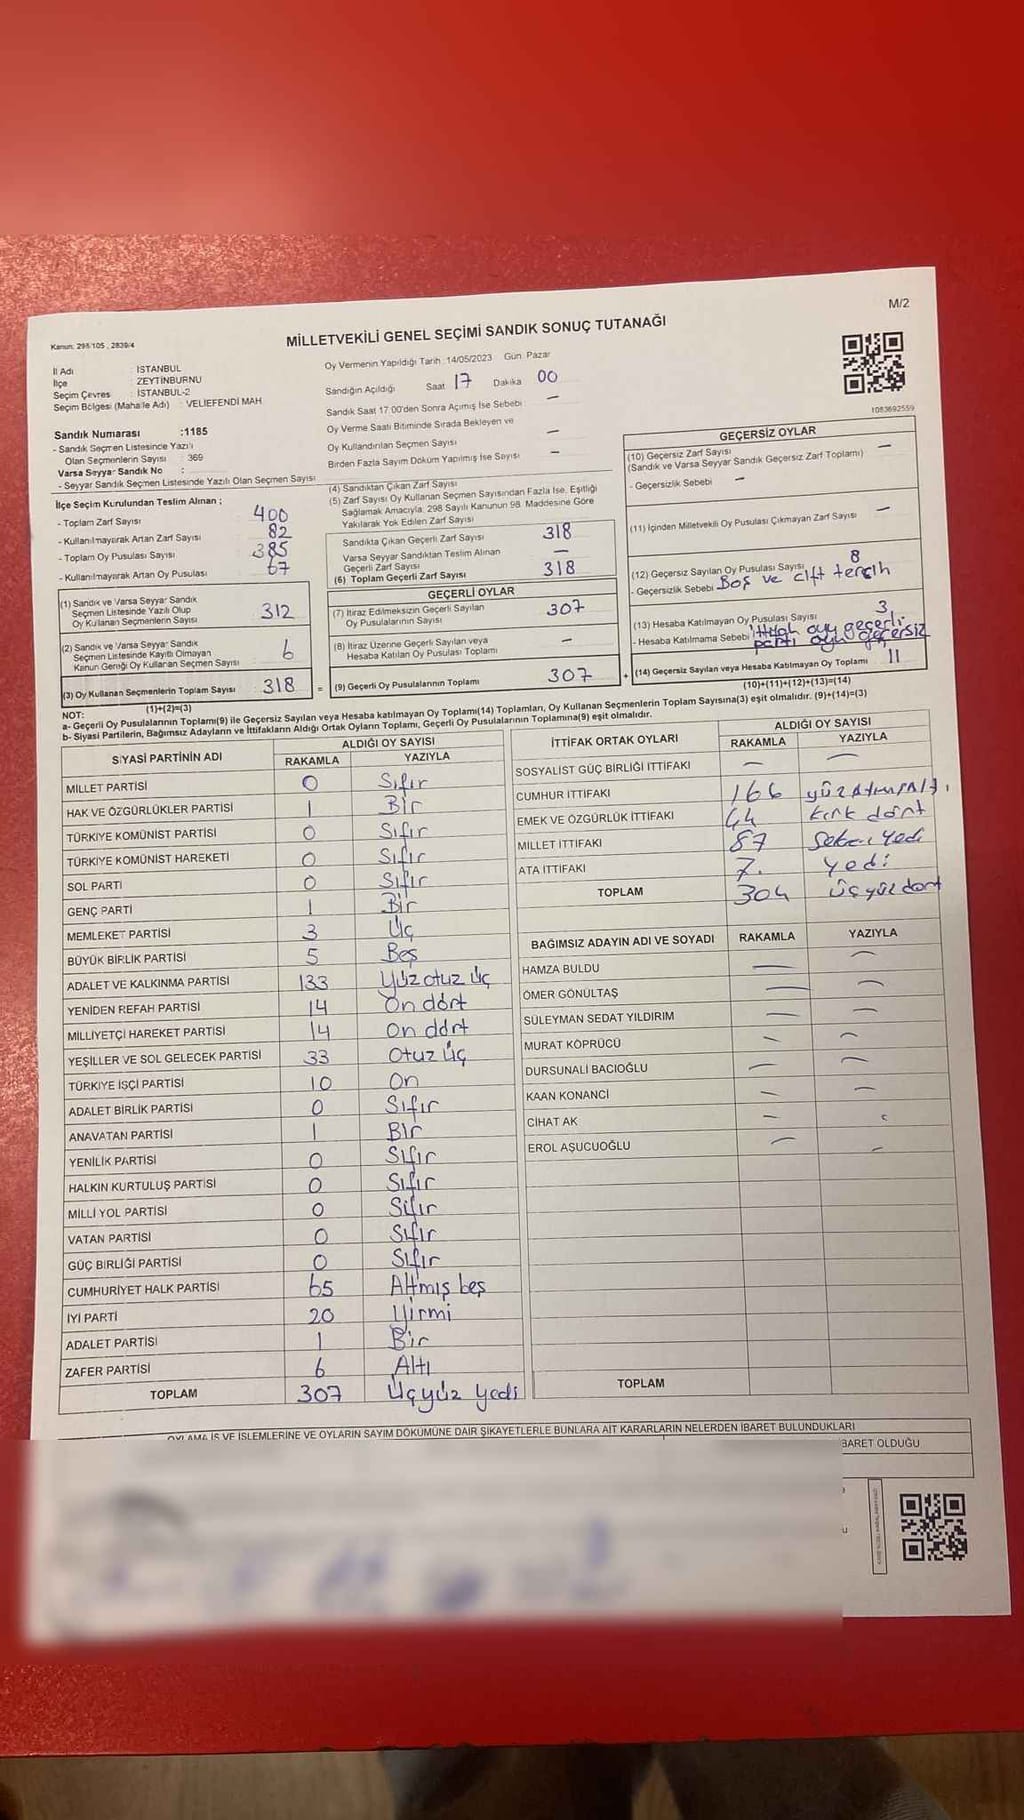 M/2
Kanun: 298/105 , 2839/4
MİLLETVEKİLİ GENEL SEÇİMİ SANDIK SONUÇ TUTANAĞI
İl Adı : İSTANBUL
İlçe : ZEYTİNBURNU
Seçim Çevres : İSTANBUL-2
Seçim Bölgesi (Mahalle Adı) : VELİEFENDİ MAH
Sandık Numarası :1185
- Sandık Seçmen Listesinde Yazılı
Olan Seçmenlerin Sayısı : 369
Varsa Seyyar Sandık No :
- Seyyar Sandık Seçmen Listesinde Yazılı Olan Seçmen Sayısı
Oy Vermenin Yapıldığı Tarih : 14/05/2023 Gün Pazar
Sandığın Açıldığı Saat 17 Dakika 00
Sandık Saat 17:00'den Sonra Açımış İse Sebebi –
Oy Verme Saati Bitiminde Sırada Bekleyen ve
Oy Kullandırılan Seçmen Sayısı –
Birden Fazla Sayım Döküm Yapılmış İse Sayısı –
1083692559
İlçe Seçim Kurulundan Teslim Alınan ;
- Toplam Zarf Sayısı 400
- Kullanılmayarak Artan Zarf Sayısı 82
- Toplam Oy Pusulası Sayısı 385
- Kullanılmayarak Artan Oy Pusulası 67
(1) Sandık ve Varsa Seyyar Sandık
Seçmen Listesinde Yazılı Olup
Oy Kullanan Seçmenlerin Sayısı 312
(2) Sandık ve Varsa Seyyar Sandık
Seçmen Listesinde Kayıtlı Olmayan
Kanun Gereği Oy Kullanan Seçmen Sayısı 6
(3) Oy Kullanan Seçmenlerin Toplam Sayısı 318
(1)+(2)=(3)
(4) Sandıktan Çıkan Zarf Sayısı
(5) Zarf Sayısı Oy Kullanan Seçmen Sayısından Fazla İse, Eşitliği
Sağlamak Amacıyla, 298 Sayılı Kanunun 98. Maddesine Göre
Yakılarak Yok Edilen Zarf Sayısı
Sandıkta Çıkan Geçerli Zarf Sayısı 318
Varsa Seyyar Sandıktan Teslim Alınan
Geçerli Zarf Sayısı –
(6) Toplam Geçerli Zarf Sayısı 318
GEÇERLİ OYLAR
(7) İtiraz Edilmeksizin Geçerli Sayılan
Oy Pusulalarının Sayısı 307
(8) İtiraz Üzerine Geçerli Sayılan veya
Hesaba Katılan Oy Pusulası Toplamı –
= (9) Geçerli Oy Pusulalarının Toplamı 307 +
GEÇERSİZ OYLAR
(10) Geçersiz Zarf Sayısı –
(Sandık ve Varsa Seyyar Sandık Geçersiz Zarf Toplamı)
- Geçersizlik Sebebi –
(11) İçinden Milletvekili Oy Pusulası Çıkmayan Zarf Sayısı –
(12) Geçersiz Sayılan Oy Pusulası Sayısı 8
- Geçersizlik Sebebi Boş ve çift tercih
(13) Hesaba Katılmayan Oy Pusulası Sayısı 3
- Hesaba Katılmama Sebebi oyu geçerli
parti oyu geçersiz
(14) Geçersiz Sayılan veya Hesaba Katılmayan Oy Toplamı 11
(10)+(11)+(12)+(13)=(14)
NOT:
a- Geçerli Oy Pusulalarının Toplamı(9) ile Geçersiz Sayılan veya Hesaba katılmayan Oy Toplamı(14) Toplamları, Oy Kullanan Seçmenlerin Toplam Sayısına(3) eşit olmalıdır. (9)+(14)=(3)
b- Siyasi Partilerin, Bağımsız Adayların ve İttifakların Aldığı Ortak Oyların Toplamı, Geçerli Oy Pusulalarının Toplamına(9) eşit olmalıdır.
SİYASİ PARTİNİN ADI ALDIĞI OY SAYISI
RAKAMLA YAZIYLA
MİLLET PARTİSİ 0 Sıfır
HAK VE ÖZGÜRLÜKLER PARTİSİ 1 Bir
TÜRKİYE KOMÜNİST PARTİSİ 0 Sıfır
TÜRKİYE KOMÜNİST HAREKETİ 0 Sıfır
SOL PARTİ 0 Sıfır
GENÇ PARTİ 1 Bir
MEMLEKET PARTİSİ 3 Üç
BÜYÜK BİRLİK PARTİSİ 5 Beş
ADALET VE KALKINMA PARTİSİ 133 Yüz otuz üç
YENİDEN REFAH PARTİSİ 14 On dört
MİLLİYETÇİ HAREKET PARTİSİ 14 On dört
YEŞİLLER VE SOL GELECEK PARTİSİ 33 Otuz üç
TÜRKİYE İŞÇİ PARTİSİ 10 On
ADALET BİRLİK PARTİSİ 0 Sıfır
ANAVATAN PARTİSİ 1 Bir
YENİLİK PARTİSİ 0 Sıfır
HALKIN KURTULUŞ PARTİSİ 0 Sıfır
MİLLİ YOL PARTİSİ 0 Sıfır
VATAN PARTİSİ 0 Sıfır
GÜÇ BİRLİĞİ PARTİSİ 0 Sıfır
CUMHURİYET HALK PARTİSİ 65 Altmış beş
İYİ PARTİ 20 Yirmi
ADALET PARTİSİ 1 Bir
ZAFER PARTİSİ 6 Altı
TOPLAM 307 Üçyüz yedi
İTTİFAK ORTAK OYLARI ALDIĞI OY SAYISI
RAKAMLA YAZIYLA
SOSYALİST GÜÇ BİRLİĞİ İTTİFAKI – –
CUMHUR İTTİFAKI 166 yüzatmışaltı
EMEK VE ÖZGÜRLÜK İTTİFAKI 44 kırk dört
MİLLET İTTİFAKI 87 Seksen yedi
ATA İTTİFAKI 7. yedi
TOPLAM 304 üçyüzdört
BAĞIMSIZ ADAYIN ADI VE SOYADI RAKAMLA YAZIYLA
HAMZA BULDU – –
ÖMER GÖNÜLTAŞ – –
SÜLEYMAN SEDAT YILDIRIM – –
MURAT KÖPRÜCÜ – –
DURSUNALİ BACIOĞLU – –
KAAN KONANCİ – –
CİHAT AK –
EROL AŞUCUOĞLU – –
TOPLAM
OYLAMA İŞ VE İŞLEMLERİNE VE OYLARIN SAYIM DÖKÜMÜNE DAİR ŞİKAYETLERLE BUNLARA AİT KARARLARIN NELERDEN İBARET BULUNDUKLARI
BARET OLDUĞU